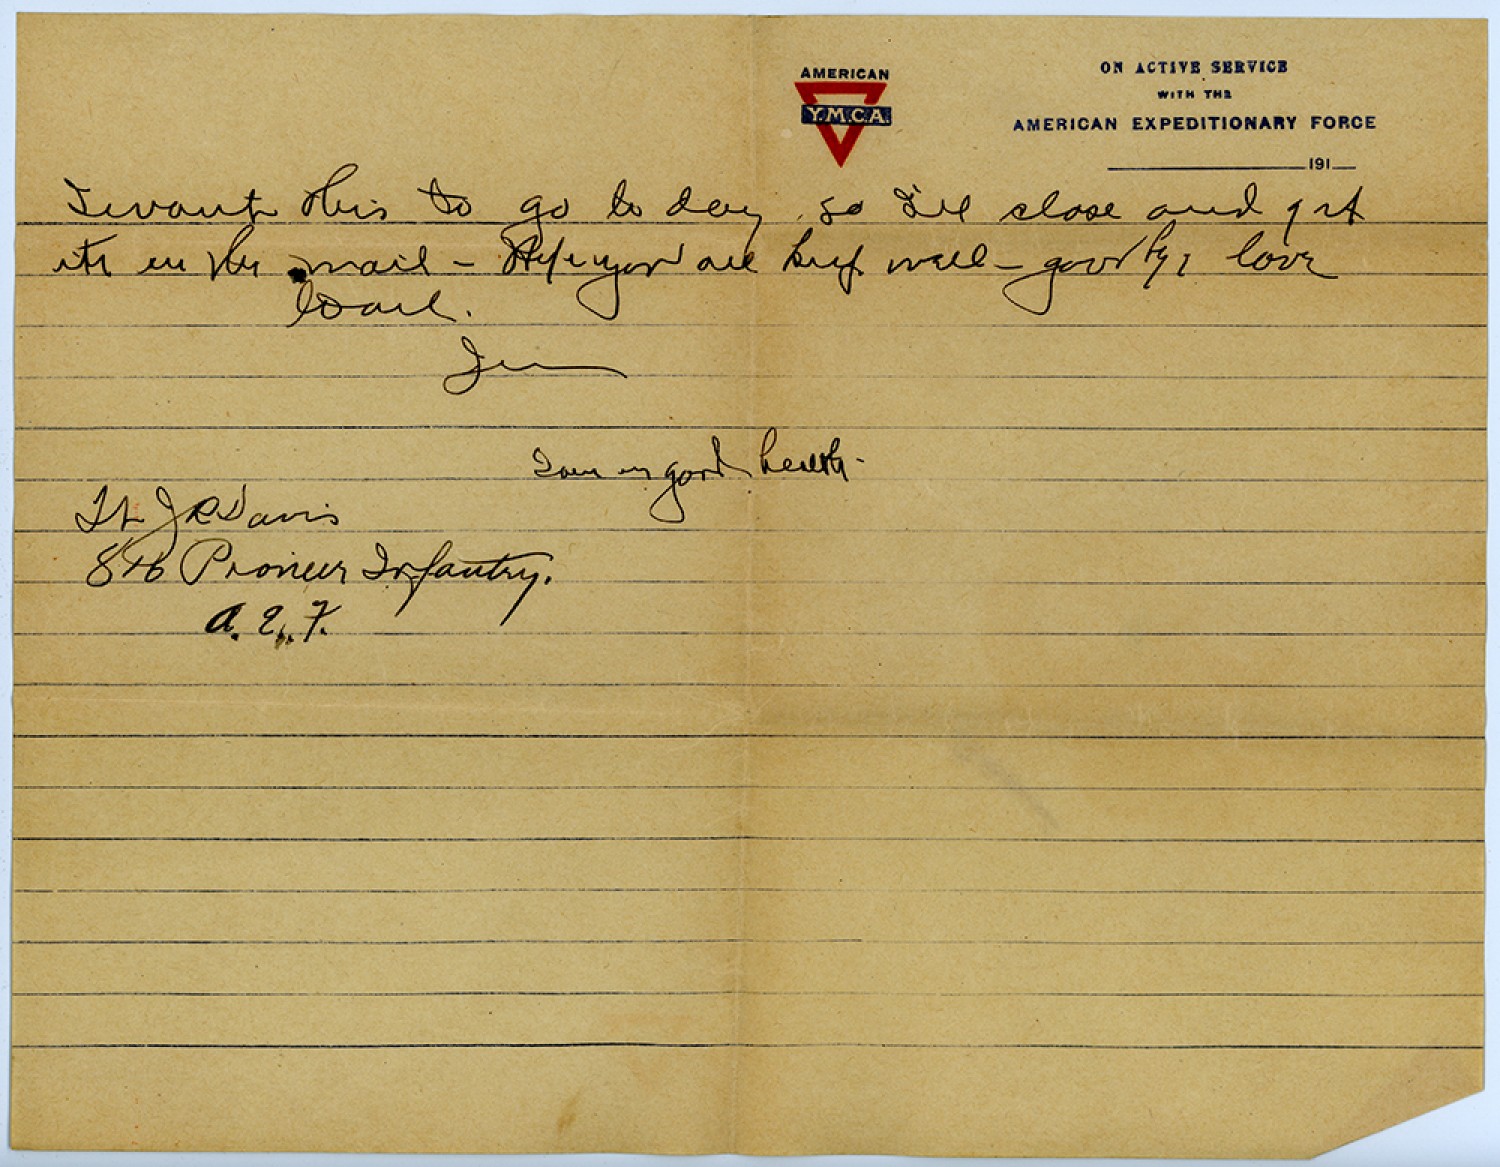 AMERICAN
Y.M.C.A.
ON ACTIVE SERVICE
WITH THE
AMERICAN EXPEDITIONARY FORCE
191
I want this to go to day, so I'll close and get
it in the mail - Hope you all keep well - goodbye, love
to all.
Jim
I am in good health -
Lt J R Davis
816 Pioneer Infantry.
A. E. F.